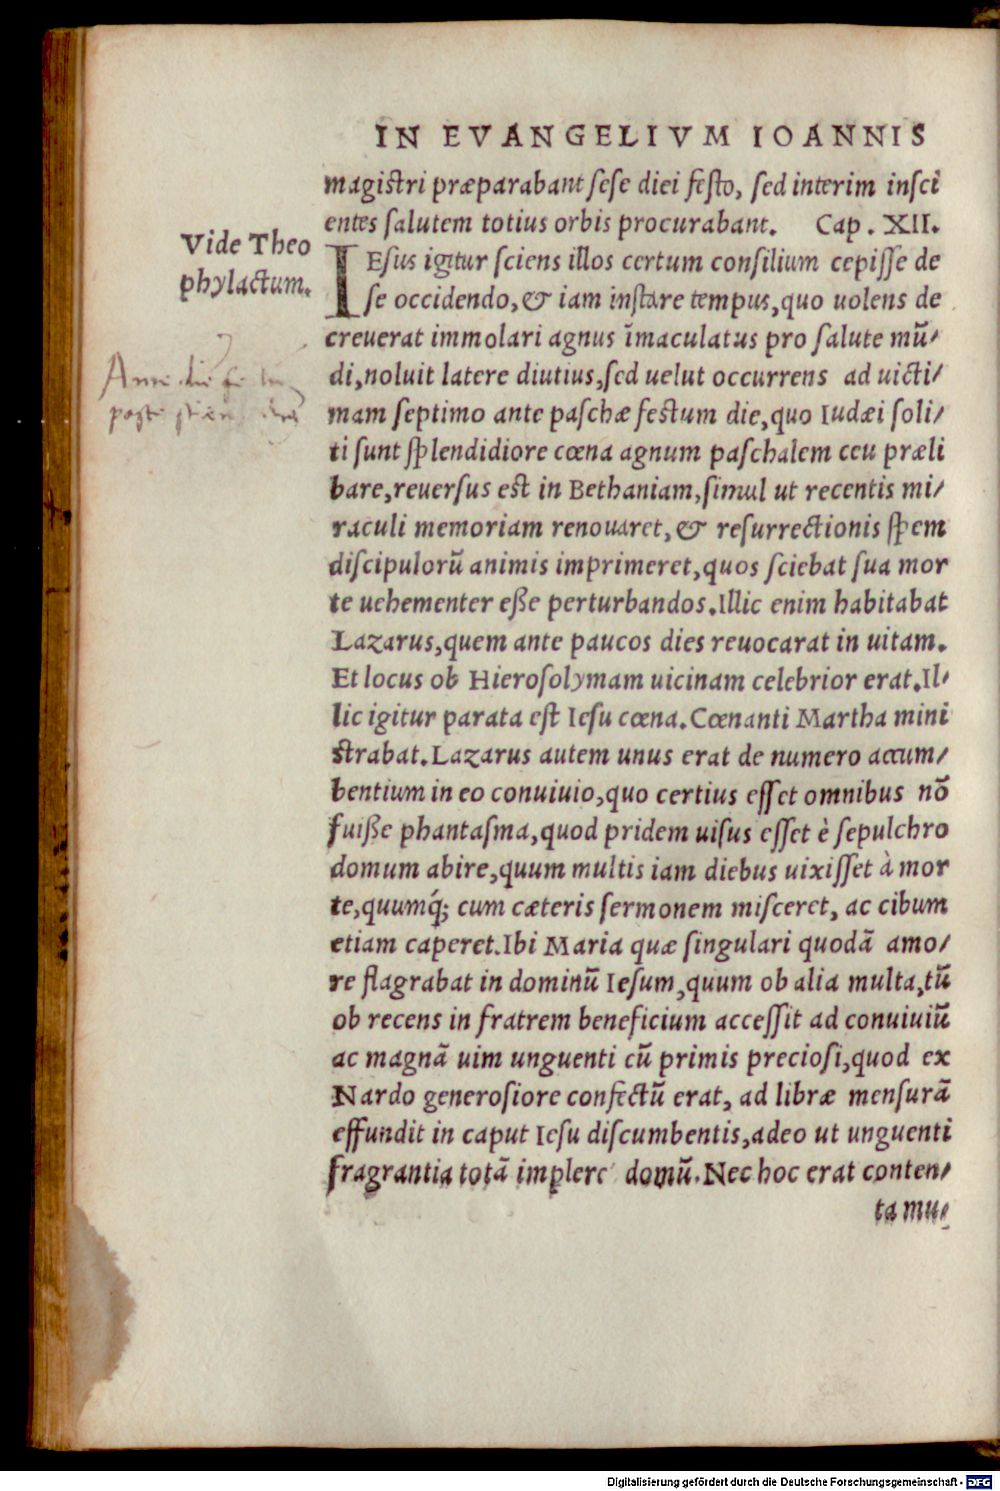 IN EVANGELIVM IOANNIS
magistri præparabant sese diei festo, sed interim insci
entes salutem totius orbis procurabant. Cap. XII.
Vide Theo
phylactum.
IEsus igitur sciens illos certum consilium cepisse de
se occidendo, & iam instare tempus, quo uolens de
creuerat immolari agnus īmaculatus pro salute mū-
di, noluit latere diutius, sed uelut occurrens ad uicti-
mam septimo ante paschæ festum die, quo Iudæi soli-
ti sunt splendidiore cœna agnum paschalem ceu præli
bare, reuersus est in Bethaniam, simul ut recentis mi-
raculi memoriam renouaret, & resurrectionis spem
discipulorū animis imprimeret, quos sciebat sua mor
te uehementer eße perturbandos. Illic enim habitabat
Lazarus, quem ante paucos dies reuocarat in uitam.
Et locus ob Hierosolymam uicinam celebrior erat. Il-
lic igitur parata est Iesu cœna. Cœnanti Martha mini
strabat. Lazarus autem unus erat de numero accum-
bentium in eo conuiuio, quo certius esset omnibus nō
fuiße phantasma, quod pridem uisus esset è sepulchro
domum abire, quum multis iam diebus uixisset à mor
te, quumq́; cum cæteris sermonem misceret, ac cibum
etiam caperet. Ibi Maria quæ singulari quodā amo-
re flagrabat in dominū Iesum, quum ob alia multa, tū
ob recens in fratrem beneficium accessit ad conuiuiū
ac magnā uim unguenti cū primis preciosi, quod ex
Nardo generosiore confectū erat, ad libræ mensurā
effundit in caput Iesu discumbentis, adeo ut unguenti
fragrantia totā implere domū. Nec hoc erat conten-
ta mu-
Digitalisierung gefördert durch die Deutsche Forschungsgemeinschaft - DFG